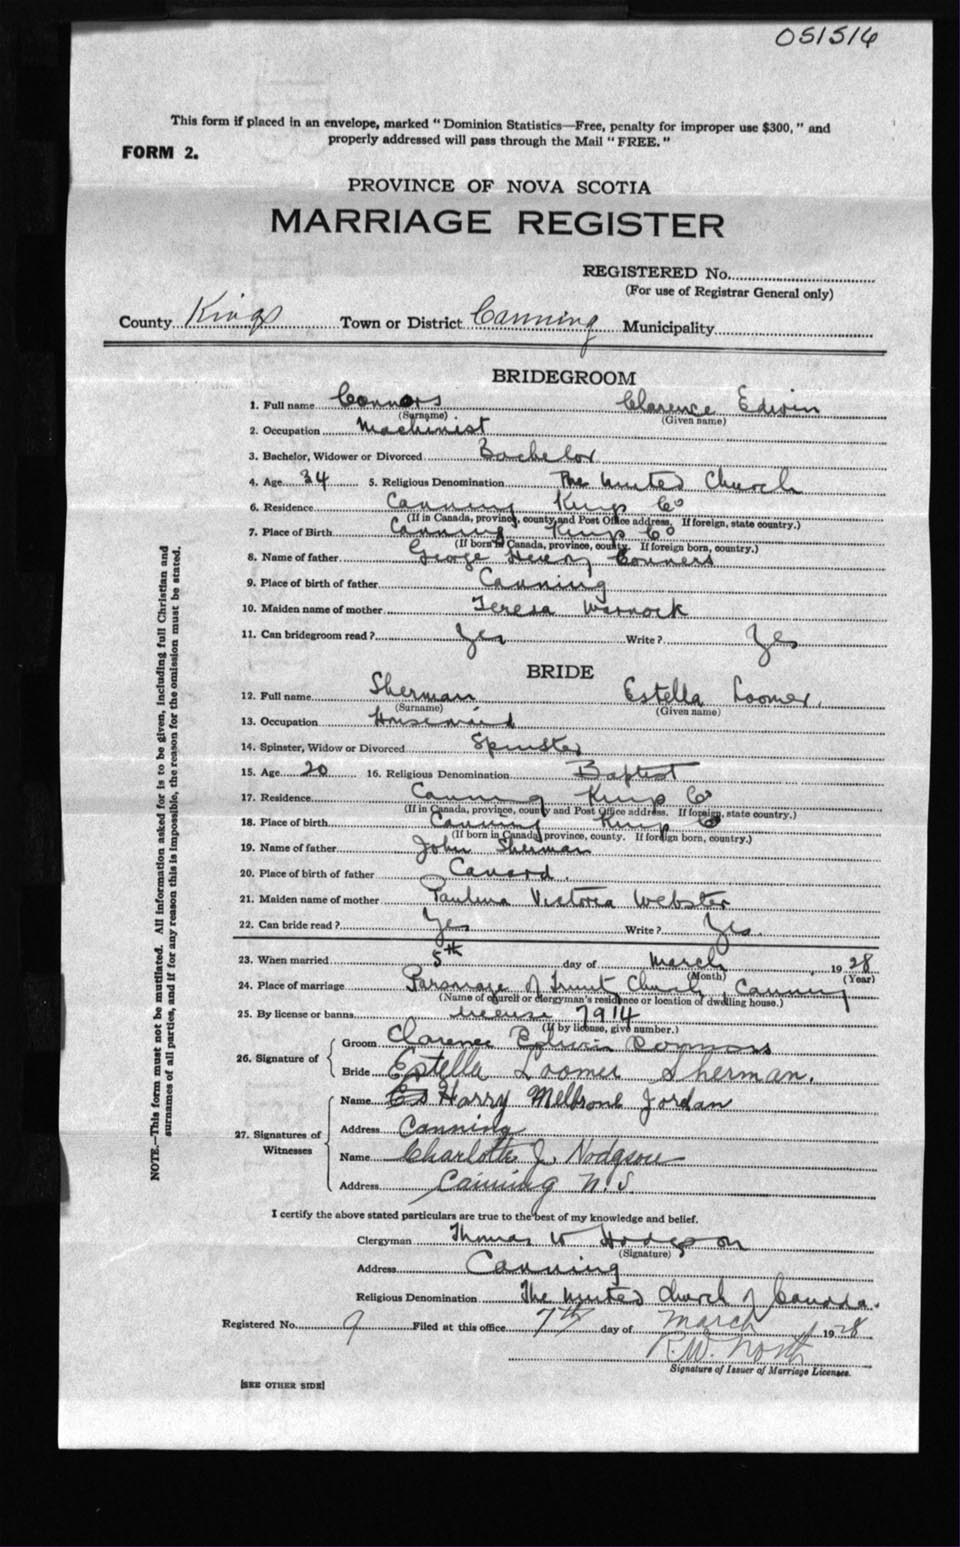 051516
This form if placed in an envelope, marked "Dominion Statistics—Free, penalty for improper use $300," and
properly addressed will pass through the Mail "FREE."
FORM 2.
PROVINCE OF NOVA SCOTIA
MARRIAGE REGISTER
REGISTERED No.
(For use of Registrar General only)
County Kings Town or District Canning Municipality
BRIDEGROOM
1. Full name Connors Clarence Edwin
(Surname) (Given name)
2. Occupation Machinist
3. Bachelor, Widower or Divorced Bachelor
4. Age 34 5. Religious Denomination The United Church
6. Residence Canning Kings Co
(If in Canada, province, county and Post Office address. If foreign, state country.)
7. Place of Birth Canning Kings Co
(If born in Canada, province, county. If foreign born, country.)
8. Name of father George Henry Conners
9. Place of birth of father Canning
10. Maiden name of mother Teresa Warnock
11. Can bridegroom read? Yes Write? Yes
BRIDE
12. Full name Sherman Estella Loomer.
(Surname) (Given name)
13. Occupation Housemaid
14. Spinster, Widow or Divorced Spinster
15. Age 20 16. Religious Denomination Baptist
17. Residence Canning Kings Co
(If in Canada, province, county and Post Office address. If foreign, state country.)
18. Place of birth Canning Kings Co
(If born in Canada province, county. If foreign born, country.)
19. Name of father John Sherman
20. Place of birth of father Canard.
21. Maiden name of mother Paulina Victoria Webster
22. Can bride read? Yes Write? Yes.
23. When married 5th day of March 1928
(Month) (Year)
24. Place of marriage Parsonage of Church, Canning
(Name of church or clergyman's residence or location of dwelling house.)
25. By license or banns license 7914
(If by license, give number.)
26. Signature of
Groom Clarence Edwin Connors
Bride Estella Loomer Sherman.
27. Signatures of Witnesses
Name Harry Jordan
Address Canning
Name Charlotte J. Hodgson
Address Canning N.S.
I certify the above stated particulars are true to the best of my knowledge and belief.
Clergyman Thomas W Hodgson
(Signature)
Address Canning
Religious Denomination The United Church of Canada.
Registered No. 9 Filed at this office 7th day of March 1928
R.W. North
Signature of Issuer of Marriage Licenses.
[SEE OTHER SIDE]
NOTE.—This form must not be mutilated. All information asked for is to be given, including full Christian and
surnames of all parties, and if for any reason this is impossible, the reason for the omission must be stated.